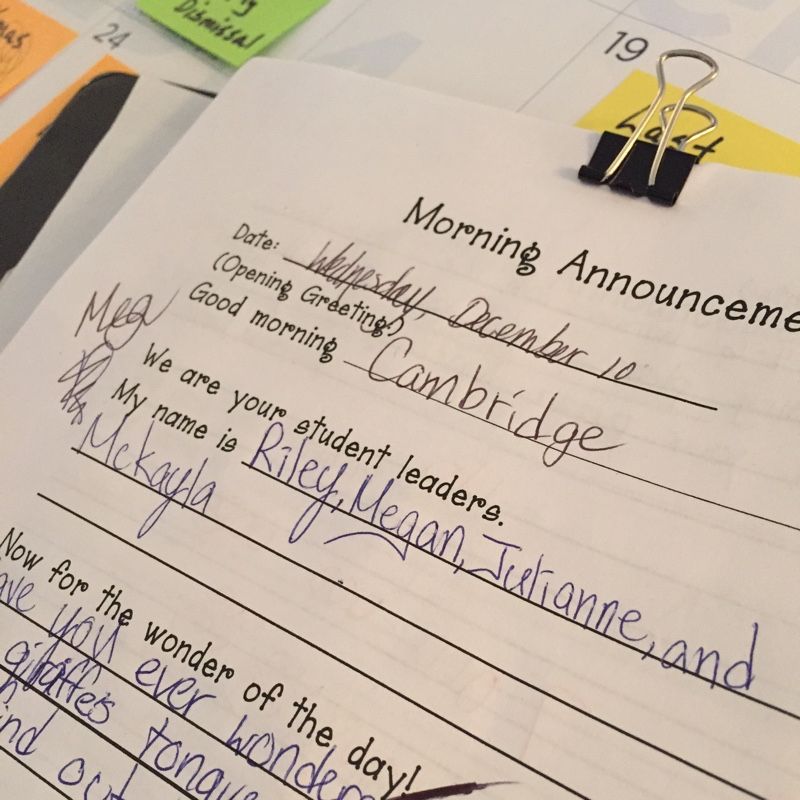 Dismissal
24
19
Last
Morning Announceme
Date: Wednesday, December 10
(Opening Greeting)
Good morning Cambridge
Mega
We are your student leaders.
My name is Riley, Megan, Julianne, and
Mckayla
Now for the wonder of the day!
ave you ever wondered
giraffes tongue
ind out